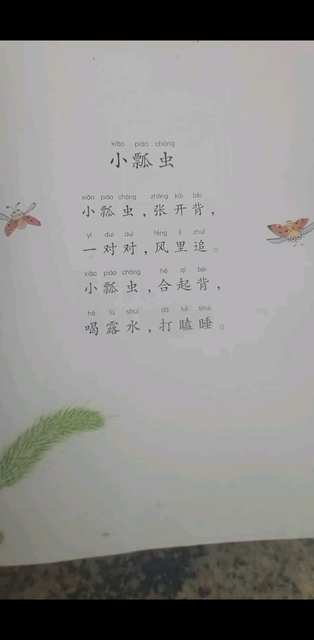 xiǎo piáo chóng
小瓢虫
xiǎo piáo chóng zhāng kāi bèi
小瓢虫，张开背，
yí duì duì fēng lǐ zhuī
一对对，风里追。
xiǎo piáo chóng hé qǐ bèi
小瓢虫，合起背，
hē lù shuǐ dǎ kē shuì
喝露水，打瞌睡。